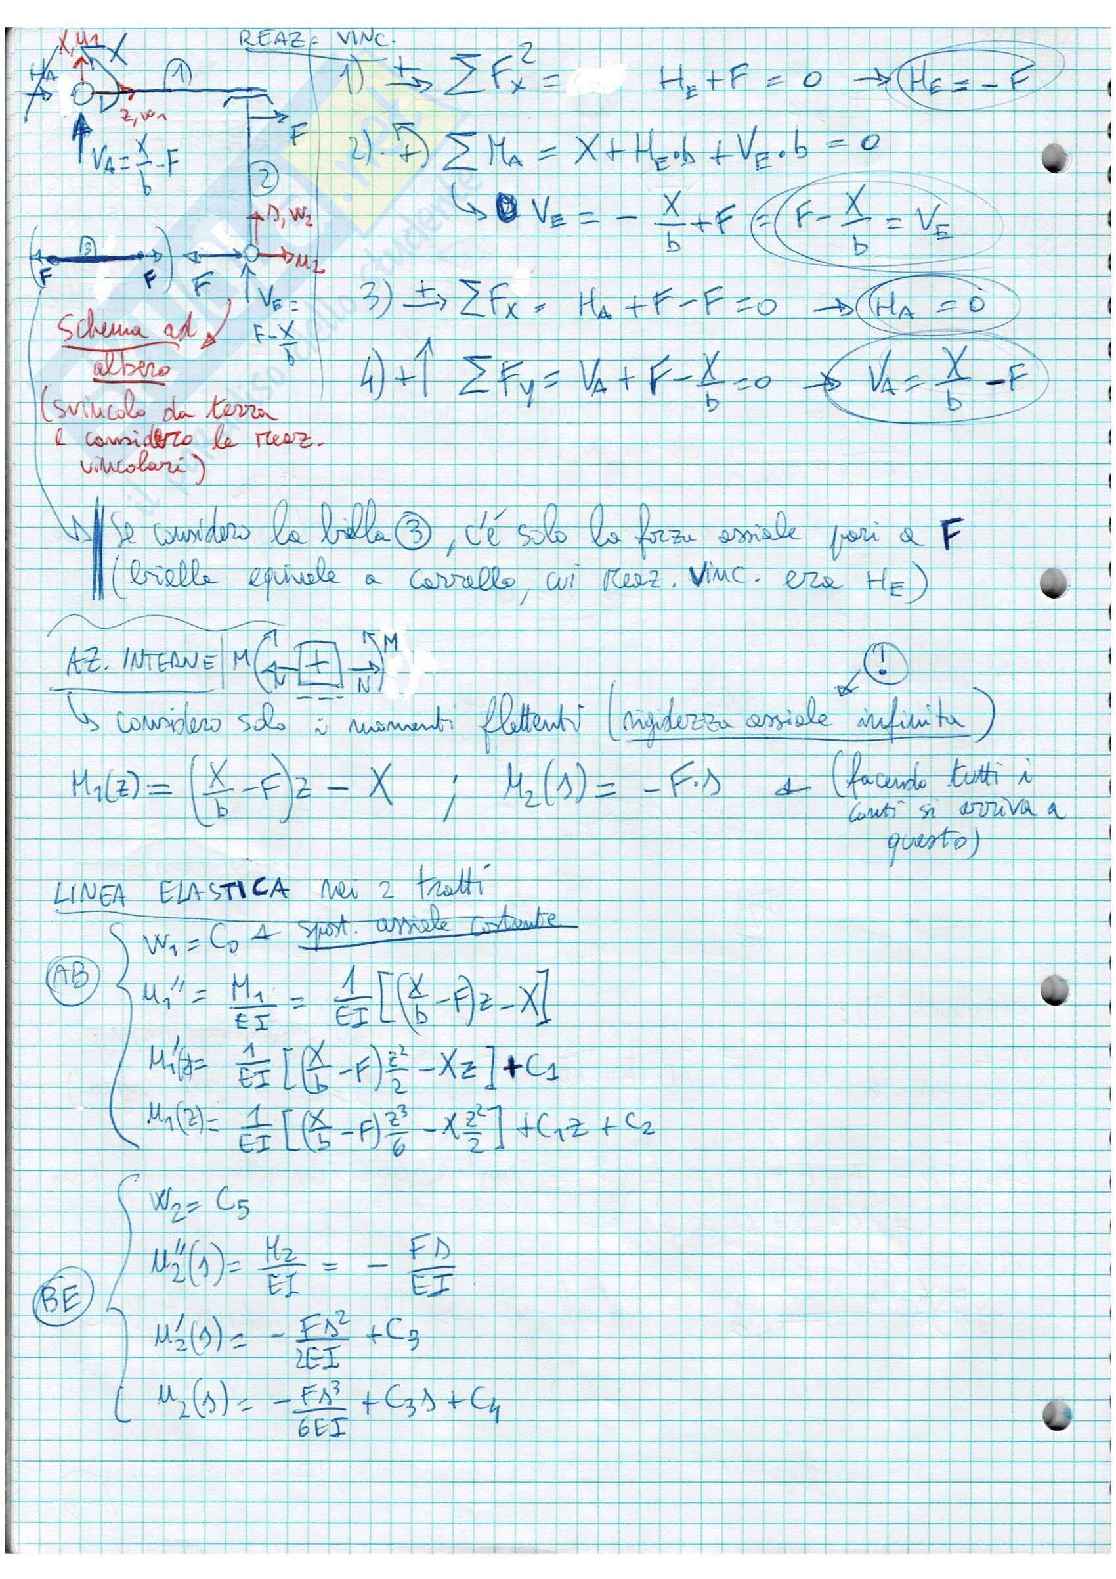 REAZ= VINC.
X, u1 X
HA
1
z, w1
VA = X/b - F
F
2
s, w2
u2
3
F F
F
VE = F - X/b
Schema ad
albero
(svincolo da terra
e considero le reaz.
vincolari)
1) +→ ΣFx² = HE + F = 0 → HE = -F
2) +) ΣMA = X + HE·b + VE·b = 0
↳ VE = - X/b + F = F - X/b = VE
3) +→ ΣFx = HA + F - F = 0 → HA = 0
4) +↑ ΣFy = VA + F - X/b = 0 → VA = X/b - F
Se considero la biella 3, c'é solo la forza assiale pari a F
(biella equivale a carrello, cui reaz. vinc. era HE)
AZ. INTERNE M N + N M
!
↳ considero solo i momenti flettenti (rigidezza assiale infinita)
M1(z) = (X/b - F)z - X ; M2(s) = -F·s ← (facendo tutti i
conti si arriva a
questo)
LINEA ELASTICA nei 2 tratti
AB
w1 = C0 ← spost. assiale costante
u1'' = M1/EI = 1/EI [(X/b - F)z - X]
u1'(z) = 1/EI [(X/b - F) z²/2 - Xz] + C1
u1(z) = 1/EI [(X/b - F) z³/6 - X z²/2] + C1z + C2
BE
w2 = C5
u2''(s) = M2/EI = - Fs/EI
u2'(s) = - Fs²/2EI + C3
u2(s) = - Fs³/6EI + C3s + C4